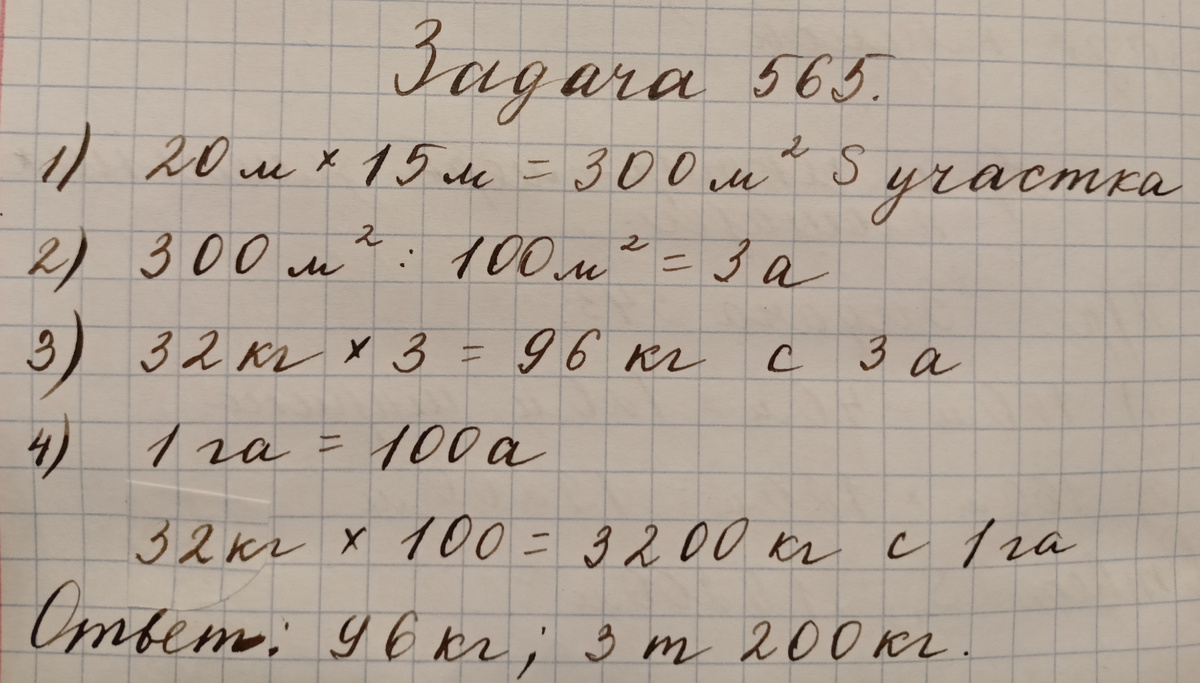 Задача 565.
1) 20 м × 15 м = 300 м² S участка
2) 300 м² : 100 м² = 3 а
3) 32 кг × 3 = 96 кг с 3 а
4) 1 га = 100 а
32 кг × 100 = 3200 кг с 1 га
Ответ: 96 кг; 3 т 200 кг.